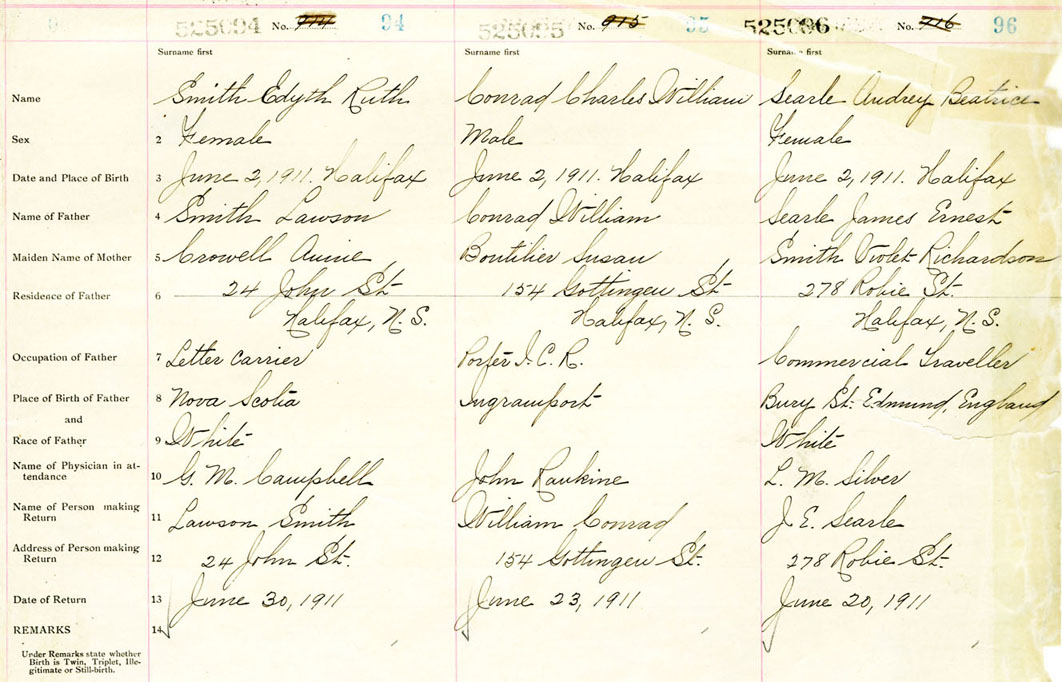 525094 No. 914 94 525095 No. 915 95 525096 No. 916 96
Surname first Surname first Surname first
Name Smith Edyth Ruth Conrad Charles William Searle Audrey Beatrice
Sex 2 Female Male Female
Date and Place of Birth 3 June 2, 1911. Halifax June 2, 1911. Halifax June 2, 1911. Halifax
Name of Father 4 Smith Lawson Conrad William Searle James Ernest
Maiden Name of Mother 5 Crowell Annie Boutilier Susan Smith Violet Richardson
Residence of Father 6 24 John St. 154 Gottingen St. 278 Robie St.
Halifax, N.S. Halifax, N.S. Halifax, N.S.
Occupation of Father 7 Letter carrier Porter I.C.R. Commercial Traveller
Place of Birth of Father 8 Nova Scotia Ingramport Bury St. Edmund, England
and
Race of Father 9 White White
Name of Physician in at-
tendance 10 G. M. Campbell John Rankine L. M. Silver
Name of Person making
Return 11 Lawson Smith William Conrad J. E. Searle
Address of Person making
Return 12 24 John St. 154 Gottingen St. 278 Robie St.
Date of Return 13 June 30, 1911 June 23, 1911 June 20, 1911
REMARKS 14
Under Remarks state whether
Birth is Twin, Triplet, Ille-
gitimate or Still-birth.